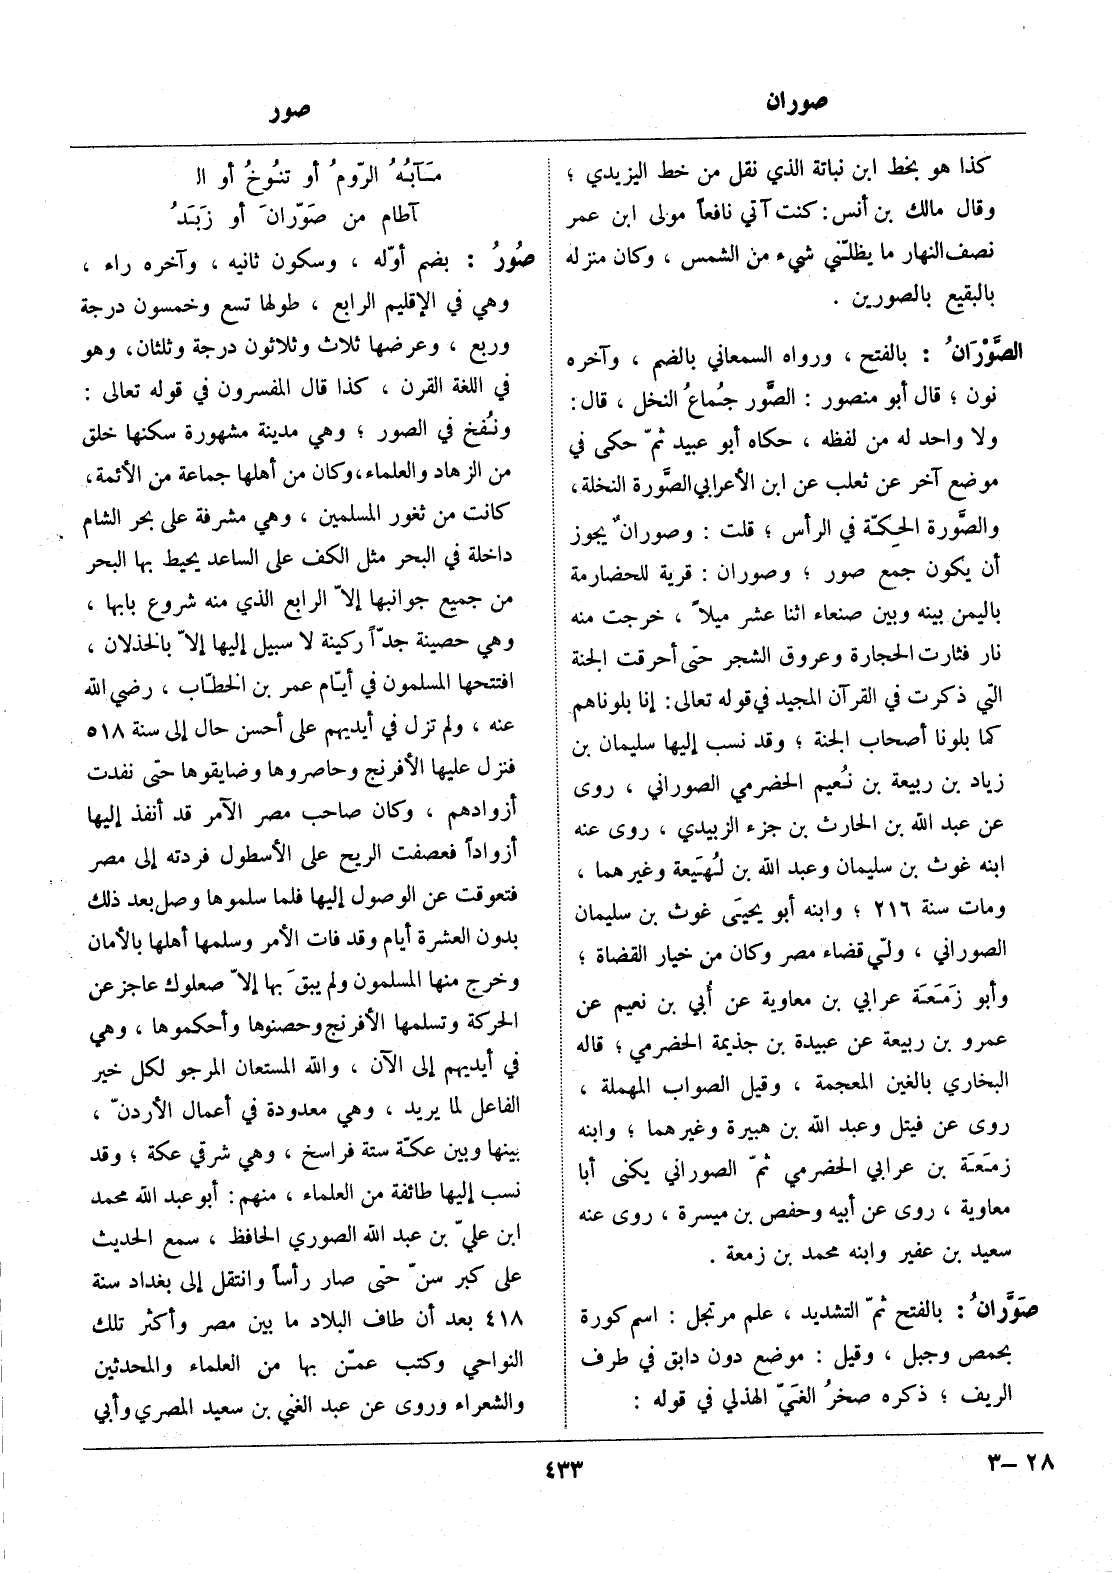 صوران
صور
كذا هو بخط ابن نباتة الذي نقل من خط اليزيدي ؛
وقال مالك بن أنس : كنت آتي نافعاً مولى ابن عمر
نصف النهار ما يظلّني شيء من الشمس ، وكان منزله
بالبقيع بالصورين .
الصَّوْرَانُ : بالفتح ، ورواه السمعاني بالضم ، وآخره
نون ؛ قال أبو منصور : الصَّور جُماعُ النخل ، قال :
ولا واحد له من لفظه ، حكاه أبو عبيد ثمّ حكى في
موضع آخر عن ثعلب عن ابن الأعرابي الصَّورة النخلة ،
والصَّورة الحِكّة في الرأس ؛ قلت : وصورانٌ يجوز
أن يكون جمع صور ؛ وصوران : قرية للحضارمة
باليمن بينه وبين صنعاء اثنا عشر ميلاً ، خرجت منه
نار فثارت الحجارة وعروق الشجر حتى أحرقت الجنة
التي ذكرت في القرآن المجيد في قوله تعالى : إنا بلوناهم
كما بلونا أصحاب الجنة ؛ وقد نسب إليها سليمان بن
زياد بن ربيعة بن نُعيم الحضرمي الصوراني ، روى
عن عبد الله بن الحارث بن جزء الزبيدي ، روى عنه
ابنه غوث بن سليمان وعبد الله بن لُهَيعة وغيرهما ،
ومات سنة ٢١٦ ؛ وابنه أبو يحيَى غوث بن سليمان
الصوراني ، ولّي قضاء مصر وكان من خيار القضاة ؛
وأبو زَمَعَة عرابي بن معاوية عن أُبي بن نعيم عن
عمرو بن ربيعة عن عبيدة بن جذيمة الحضرمي ؛ قاله
البخاري بالغين المعجمة ، وقيل الصواب المهملة ،
روى عن فيتل وعبد الله بن هبيرة وغيرهما ؛ وابنه
زمَعَة بن عرابي الحضرمي ثمّ الصوراني يكنى أبا
معاوية ، روى عن أبيه وحفص بن ميسرة ، روى عنه
سعيد بن عفير وابنه محمد بن زمعة .
صَوَّرانُ : بالفتح ثمّ التشديد ، علم مرتجل : اسم كورة
بحمص وجبل ، وقيل : موضع دون دابق في طرف
الريف ؛ ذكره صخرُ الغَيّ الهذلي في قوله :
مَآبُهُ الرّومُ أو تنُوخُ أو ال
آطام من صَوّرانَ أو زَبَدُ
صُورُ : بضم أوّله ، وسكون ثانيه ، وآخره راء ،
وهي في الإقليم الرابع ، طولها تسع وخمسون درجة
وربع ، وعرضها ثلاث وثلاثون درجة وثلثان ، وهو
في اللغة القرن ، كذا قال المفسرون في قوله تعالى :
ونُفخ في الصور ؛ وهي مدينة مشهورة سكنها خلق
من الزهاد والعلماء ، وكان من أهلها جماعة من الأئمة ،
كانت من ثغور المسلمين ، وهي مشرفة على بحر الشام
داخلة في البحر مثل الكف على الساعد يحيط بها البحر
من جميع جوانبها إلاّ الرابع الذي منه شروع بابها ،
وهي حصينة جدّاً ركينة لا سبيل إليها إلاّ بالخذلان ،
افتتحها المسلمون في أيّام عمر بن الخطّاب ، رضي الله
عنه ، ولم تزل في أيديهم على أحسن حال إلى سنة ٥١٨
فنزل عليها الأفرنج وحاصروها وضايقوها حتى نفدت
أزوادهم ، وكان صاحب مصر الآمر قد أنفذ إليها
أزواداً فعصفت الريح على الأسطول فردته إلى مصر
فتعوقت عن الوصول إليها فلما سلموها وصل بعد ذلك
بدون العشرة أيام وقد فات الأمر وسلمها أهلها بالأمان
وخرج منها المسلمون ولم يبقَ بها إلاّ صعلوك عاجز عن
الحركة وتسلمها الأفرنج وحصنوها وأحكموها ، وهي
في أيديهم إلى الآن ، والله المستعان المرجو لكل خير
الفاعل لما يريد ، وهي معدودة في أعمال الأردنّ ،
بينها وبين عكّة ستة فراسخ ، وهي شرقي عكة ؛ وقد
نسب إليها طائفة من العلماء ، منهم : أبو عبد الله محمد
ابن عليّ بن عبد الله الصوري الحافظ ، سمع الحديث
على كبر سنّ حتى صار رأساً وانتقل إلى بغداد سنة
٤١٨ بعد أن طاف البلاد ما بين مصر وأكثر تلك
النواحي وكتب عمّن بها من العلماء والمحدثين
والشعراء وروى عن عبد الغني بن سعيد المصري وأبي
٢٨ – ٣
٤٣٣